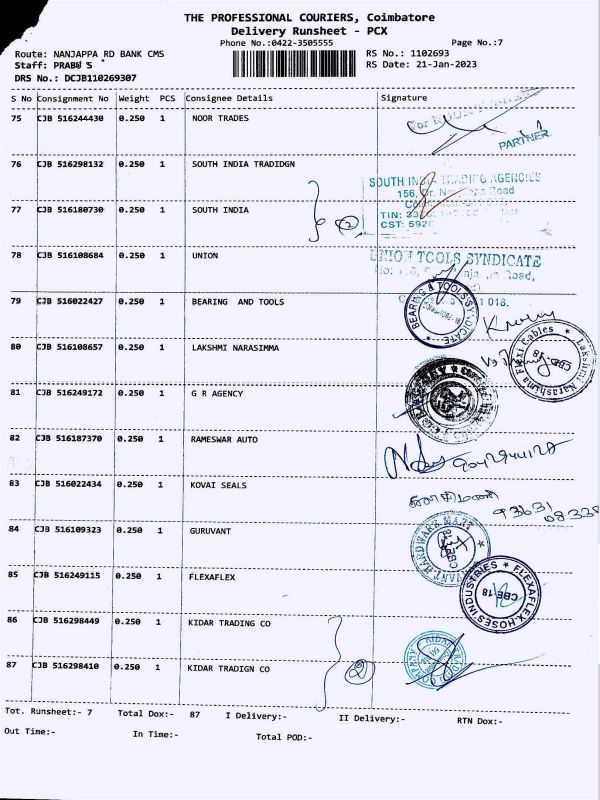 THE PROFESSIONAL COURIERS, Coimbatore
Delivery Runsheet - PCX
Phone No.:0422-3505555 Page No.:7
Route: NANJAPPA RD BANK CMS RS No.: 1102693
Staff: PRABU S RS Date: 21-Jan-2023
DRS No.: DCJB110269307
S No Consignment No Weight PCS Consignee Details Signature
75 CJB 516244430 0.250 1 NOOR TRADES
For NOOR
PARTNER
76 CJB 516298132 0.250 1 SOUTH INDIA TRADIDGN
SOUTH INDIA TRADING AGENCIES
156, Dr. Road
TIN:
CST: 5920
77 CJB 516180730 0.250 1 SOUTH INDIA
2
78 CJB 516108684 0.250 1 UNION
UNION TOOLS SYNDICATE
No: Road,
018.
79 CJB 516022427 0.250 1 BEARING AND TOOLS
BEARING & TOOLS SYNDICATE
80 CJB 516108657 0.250 1 LAKSHMI NARASIMMA
Lakshmi Narashima Flexi Cables
CBE-18
81 CJB 516249172 0.250 1 G R AGENCY
82 CJB 516187370 0.250 1 RAMESWAR AUTO
83 CJB 516022434 0.250 1 KOVAI SEALS
93631
08338
84 CJB 516109323 0.250 1 GURUVANT
HARDWARE MART
85 CJB 516249115 0.250 1 FLEXAFLEX
FLEXAFLEX HOSES INDUSTRIES
CBE-18
86 CJB 516298449 0.250 1 KIDAR TRADING CO
87 CJB 516298410 0.250 1 KIDAR TRADIGN CO
2
Tot. Runsheet:- 7 Total Dox:- 87 I Delivery:- II Delivery:- RTN Dox:-
Out Time:- In Time:- Total POD:-